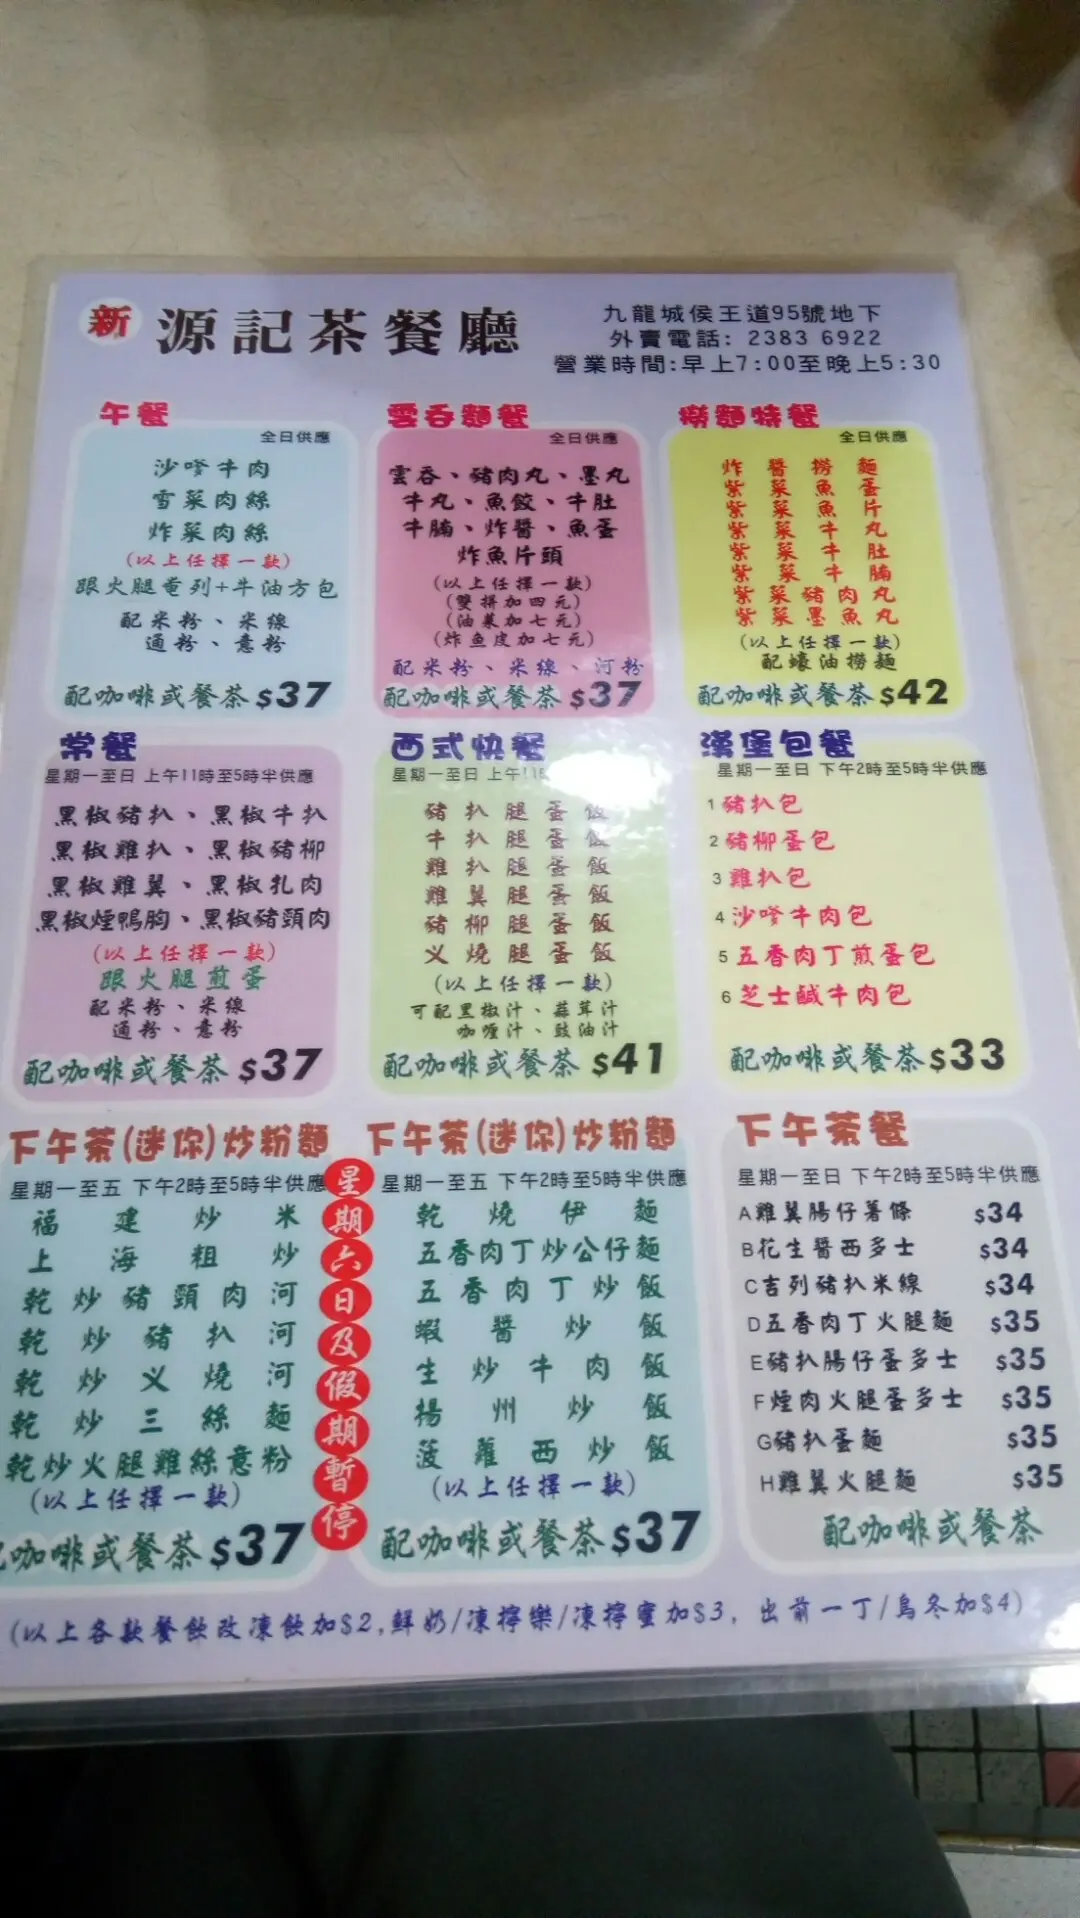 新 源記茶餐廳
九龍城侯王道95號地下
外賣電話: 2383 6922
營業時間:早上7:00至晚上5:30
午餐
全日供應
沙嗲牛肉
雪菜肉絲
炸菜肉絲
(以上任擇一款)
跟火腿奄列+牛油方包
配米粉、米線
通粉、意粉
配咖啡或餐茶 $37
雲吞麵餐
全日供應
雲吞、豬肉丸、墨丸
牛丸、魚餃、牛肚
牛腩、炸醬、魚蛋
炸魚片頭
(以上任擇一款)
(雙拼加四元)
(油菜加七元)
(炸鱼皮加七元)
配米粉、米線、河粉
配咖啡或餐茶 $37
撈麵特餐
全日供應
炸醬撈麵
紫菜魚蛋
紫菜魚片
紫菜牛丸
紫菜牛肚
紫菜牛腩
紫菜豬肉丸
紫菜墨魚丸
(以上任擇一款)
配蠔油撈麵
配咖啡或餐茶 $42
常餐
星期一至日 上午11時至5時半供應
黑椒豬扒、黑椒牛扒
黑椒雞扒、黑椒豬柳
黑椒雞翼、黑椒扎肉
黑椒煙鴨胸、黑椒豬頸肉
(以上任擇一款)
跟火腿煎蛋
配米粉、米線
通粉、意粉
配咖啡或餐茶 $37
西式快餐
星期一至日 上午11時
豬扒腿蛋飯
牛扒腿蛋飯
雞扒腿蛋飯
雞翼腿蛋飯
豬柳腿蛋飯
义燒腿蛋飯
(以上任擇一款)
可配黑椒汁、蒜茸汁
咖喱汁、豉油汁
配咖啡或餐茶 $41
漢堡包餐
星期一至日 下午2時至5時半供應
1 豬扒包
2 豬柳蛋包
3 雞扒包
4 沙嗲牛肉包
5 五香肉丁煎蛋包
6 芝士鹹牛肉包
配咖啡或餐茶 $33
下午茶(迷你)炒粉麵
星期一至五 下午2時至5時半供應
福建炒米
上海粗炒
乾炒豬頸肉河
乾炒豬扒河
乾炒义燒河
乾炒三絲麵
乾炒火腿雞絲意粉
(以上任擇一款)
配咖啡或餐茶 $37
星期六日及假期暫停
下午茶(迷你)炒粉麵
星期一至五 下午2時至5時半供應
乾燒伊麵
五香肉丁炒公仔麵
五香肉丁炒飯
蝦醬炒飯
生炒牛肉飯
揚州炒飯
菠蘿西炒飯
(以上任擇一款)
配咖啡或餐茶 $37
下午茶餐
星期一至日 下午2時至5時半供應
A雞翼腸仔薯條 $34
B花生醬西多士 $34
C吉列豬扒米線 $34
D五香肉丁火腿麵 $35
E豬扒腸仔蛋多士 $35
F煙肉火腿蛋多士 $35
G豬扒蛋麵 $35
H雞翼火腿麵 $35
配咖啡或餐茶
(以上各款餐飲改凍飲加$2,鮮奶/凍檸樂/凍檸蜜加$3, 出前一丁/烏冬加$4)